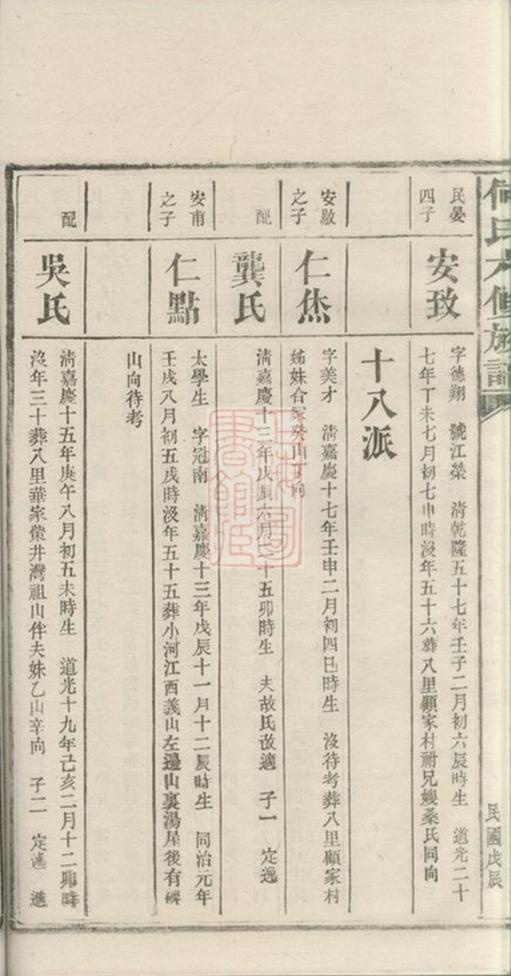 何氏六修族譜
民國戊辰
民晏
四子
安致
字德翔 號江榮 清乾隆五十七年壬子二月初六辰時生 道光二十
七年丁未七月初七申時沒年五十六葬八里顧家村祔兄嫂桑氏同向
十八派
安敭
之子
仁烋
字美才 清嘉慶十七年壬申二月初四巳時生 沒待考葬八里顧家村
姊妹合冢癸山丁向
配
龔氏
清嘉慶十三年戊辰六月二十五卯時生 夫故氏改適 子一 定逸
安甫
之子
仁點
太學生 字冠南 清嘉慶十三年戊辰十一月十二辰時生 同治元年
壬戌八月初五戌時沒年五十五葬小河江西義山左邊山裏湯屋後有碑
山向待考
配
吳氏
清嘉慶十五年庚午八月初五未時生 道光十九年己亥二月十二卯時
沒年三十葬八里華家蕾井灣祖山伴夫妹乙山辛向 子二 定邁 進